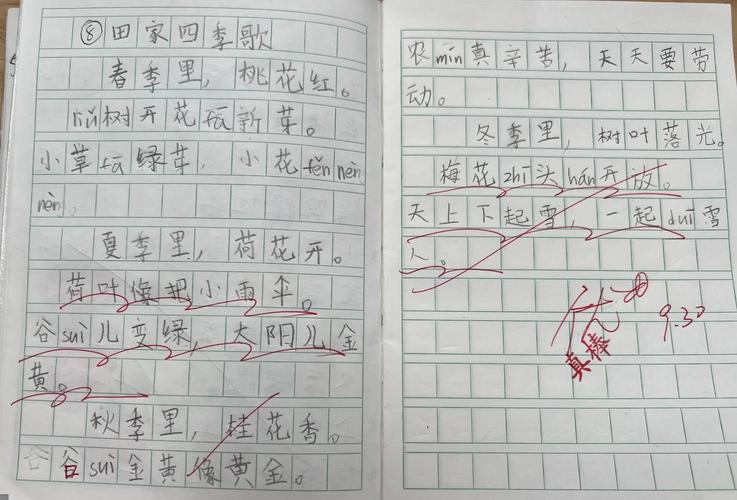 ⑧田家四季歌
春季里，桃花红。
liǔ树开花fā新芽。
小草fā绿芽，小花fěn nèn
nèn。
夏季里，荷花开。
荷叶像把小雨伞。
谷suì儿变绿，太阳儿金
黄。
秋季里，桂花香。
谷suì金黄像黄金。
农mín真辛苦，天天要劳
动。
冬季里，树叶落光。
梅花zhī头hán开放。
天上下起雪，一起duī雪
人。
优
9.30
真棒